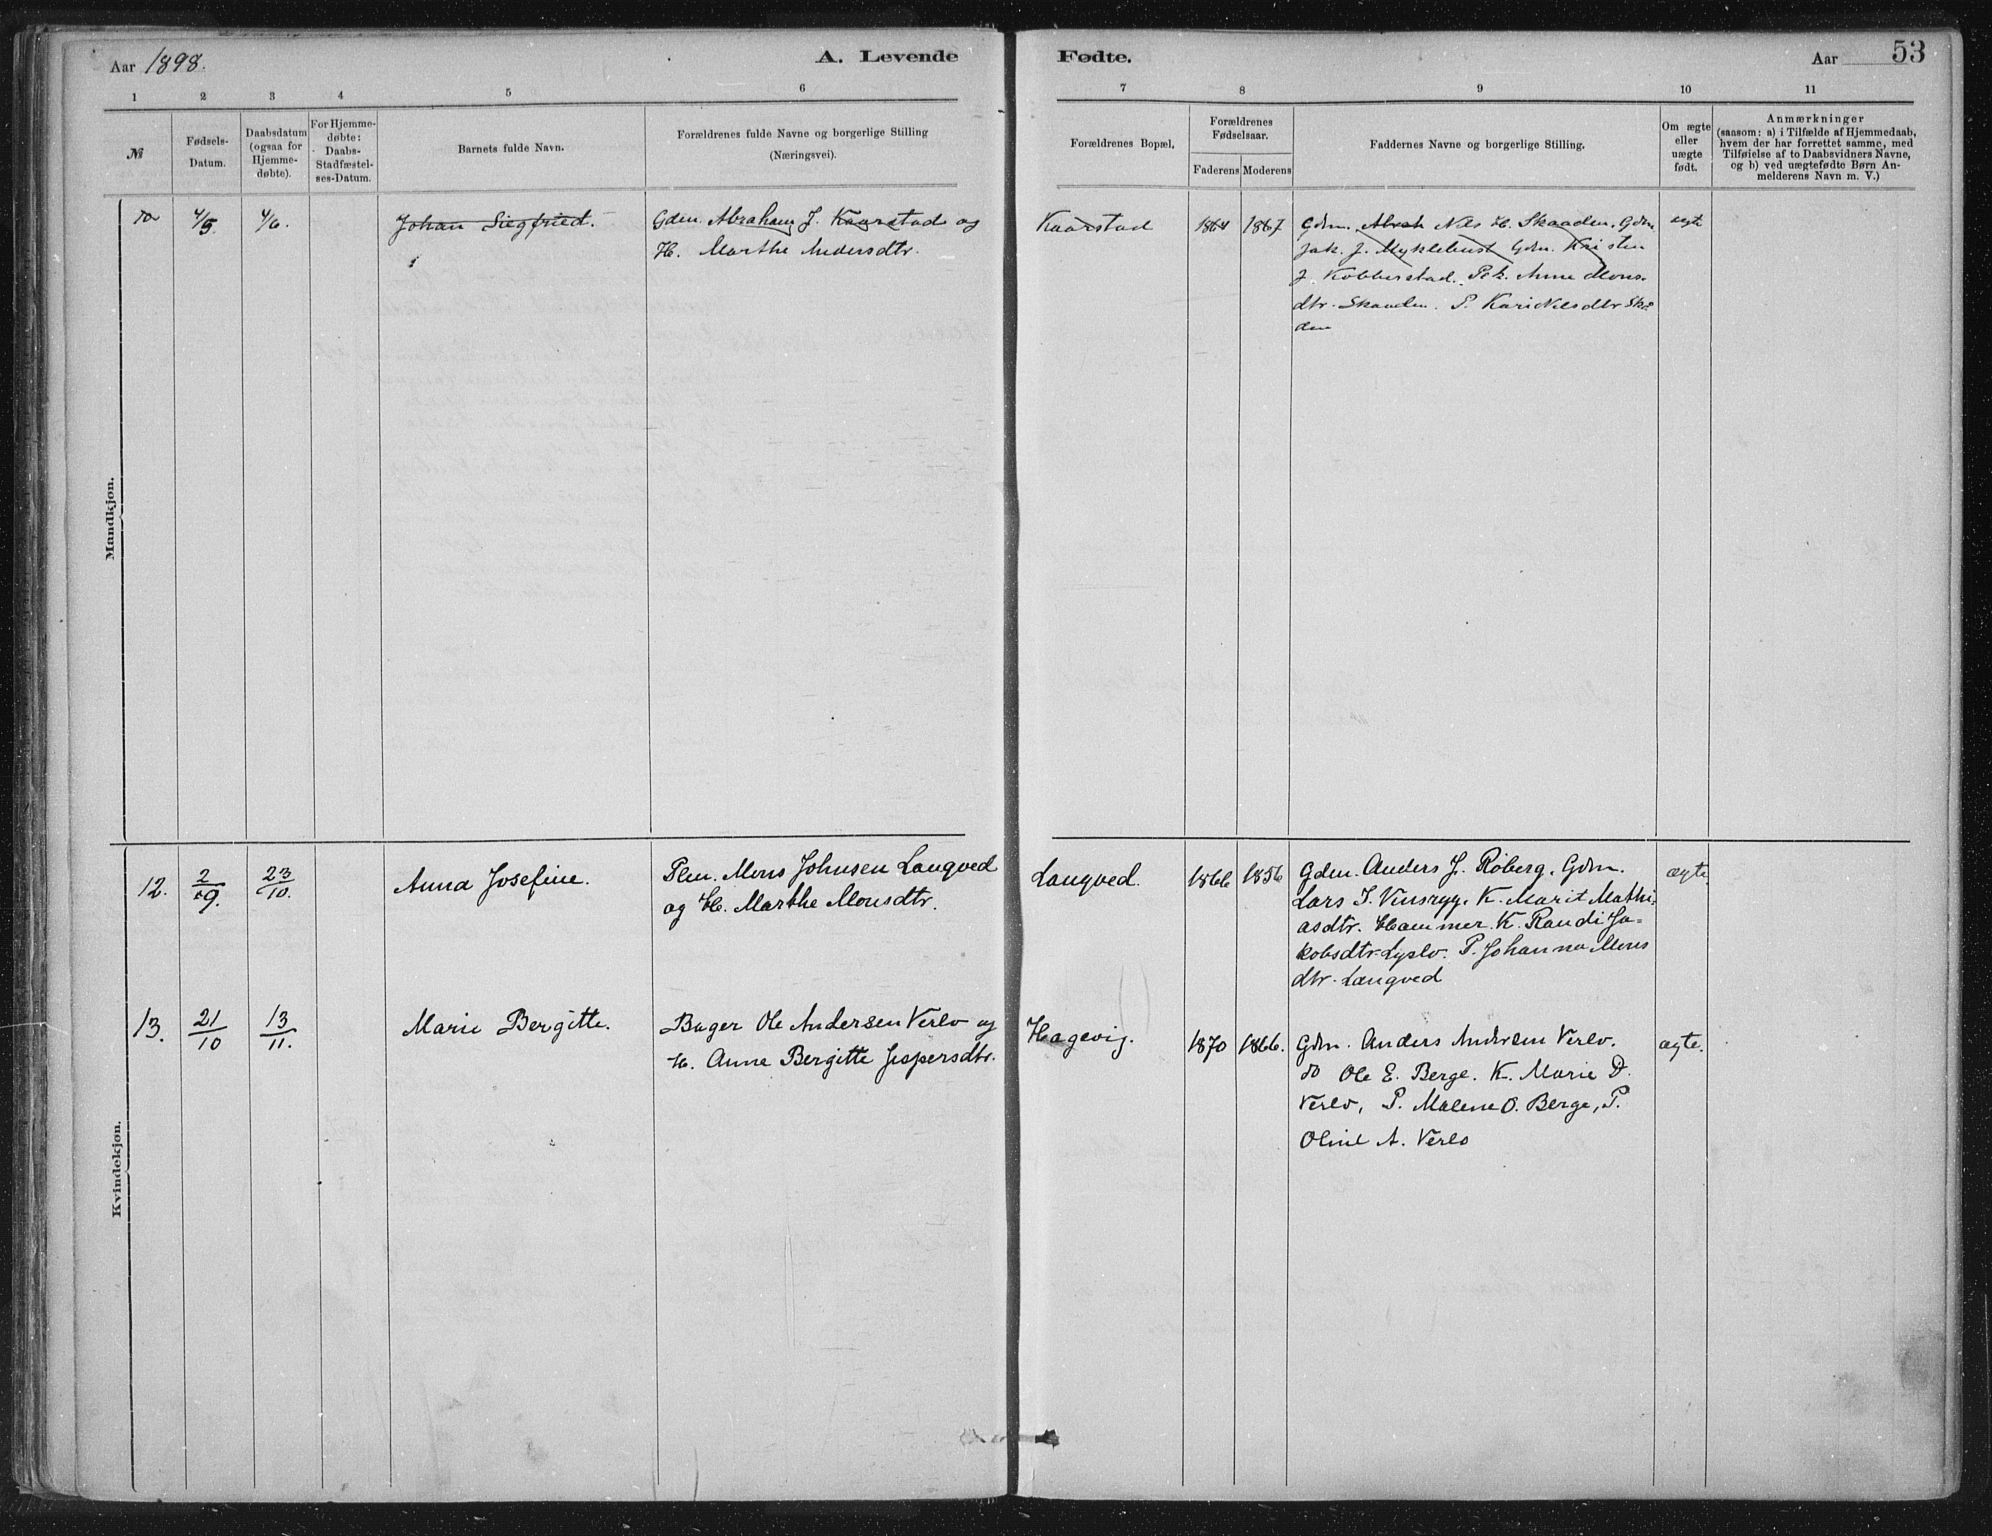 Aar 1898.
A. Levende Fødte.
Aar
53
1 2 3 4 5 6 7 8 9 10 11
№
Fødsels-
Datum.
Daabsdatum
(ogsaa for
Hjemme-
døbte).
For Hjemme-
døbte:
Daabs-
Stadfæstel-
ses-Datum.
Barnets fulde Navn.
Forældrenes fulde Navne og borgerlige Stilling
(Næringsvei).
Forældrenes Bopæl,
Forældrenes
Fødselsaar.
Faderens Moderens
Faddernes Navne og borgerlige Stilling.
Om ægte
eller
uægte
født.
Anmærkninger
(saasom: a) i Tilfælde af Hjemmedaab,
hvem der har forrettet samme, med
Tilføielse af to Daabsvidners Navne,
og b) ved uægtefødte Børn An-
melderens Navn m. V.)
Mandkjøn.
4/5. 4/6.
Johan Siegfried.
Gdm. Abraham J. Kaarstad og
H. Marthe Andersdtr.
Kaarstad
1864 1867
Gdm. Abrah Nils H. Skaaden. Gdm
Jak. J. Myklebust Gdm. Kristen
J. Kobberstad. Pik. Anne Mons-
dtr. Skaaden. P. Kari Nilsdtr Skaa
den
ægte
Kvindekjøn.
12.
2/9.
23/10.
Anna Josefine.
Plsm. Mons Johnsen Langved
og H. Marthe Monsdtr.
Langved.
1866 1856
Gdm. Anders J. Röberg. Gdm.
Lars I. Vinsryg. K. Marit Mathi-
asdtr. Hammer. K. Randi Ja-
kobsdtr Lyslo. P. Johanna Mons
dtr. Langved
ægte.
13.
21/10
13/11.
Marie Bergitte.
Bager Ole Andersen Verlo og
H. Anne Bergitte Jespersdtr.
Hagevig.
1870 1866.
Gdm. Anders Andersen Verlo.
do Ole E. Berge. K. Marie D.
Verlo, P. Malene O. Berge, P.
Oline A. Verlo
ægte.